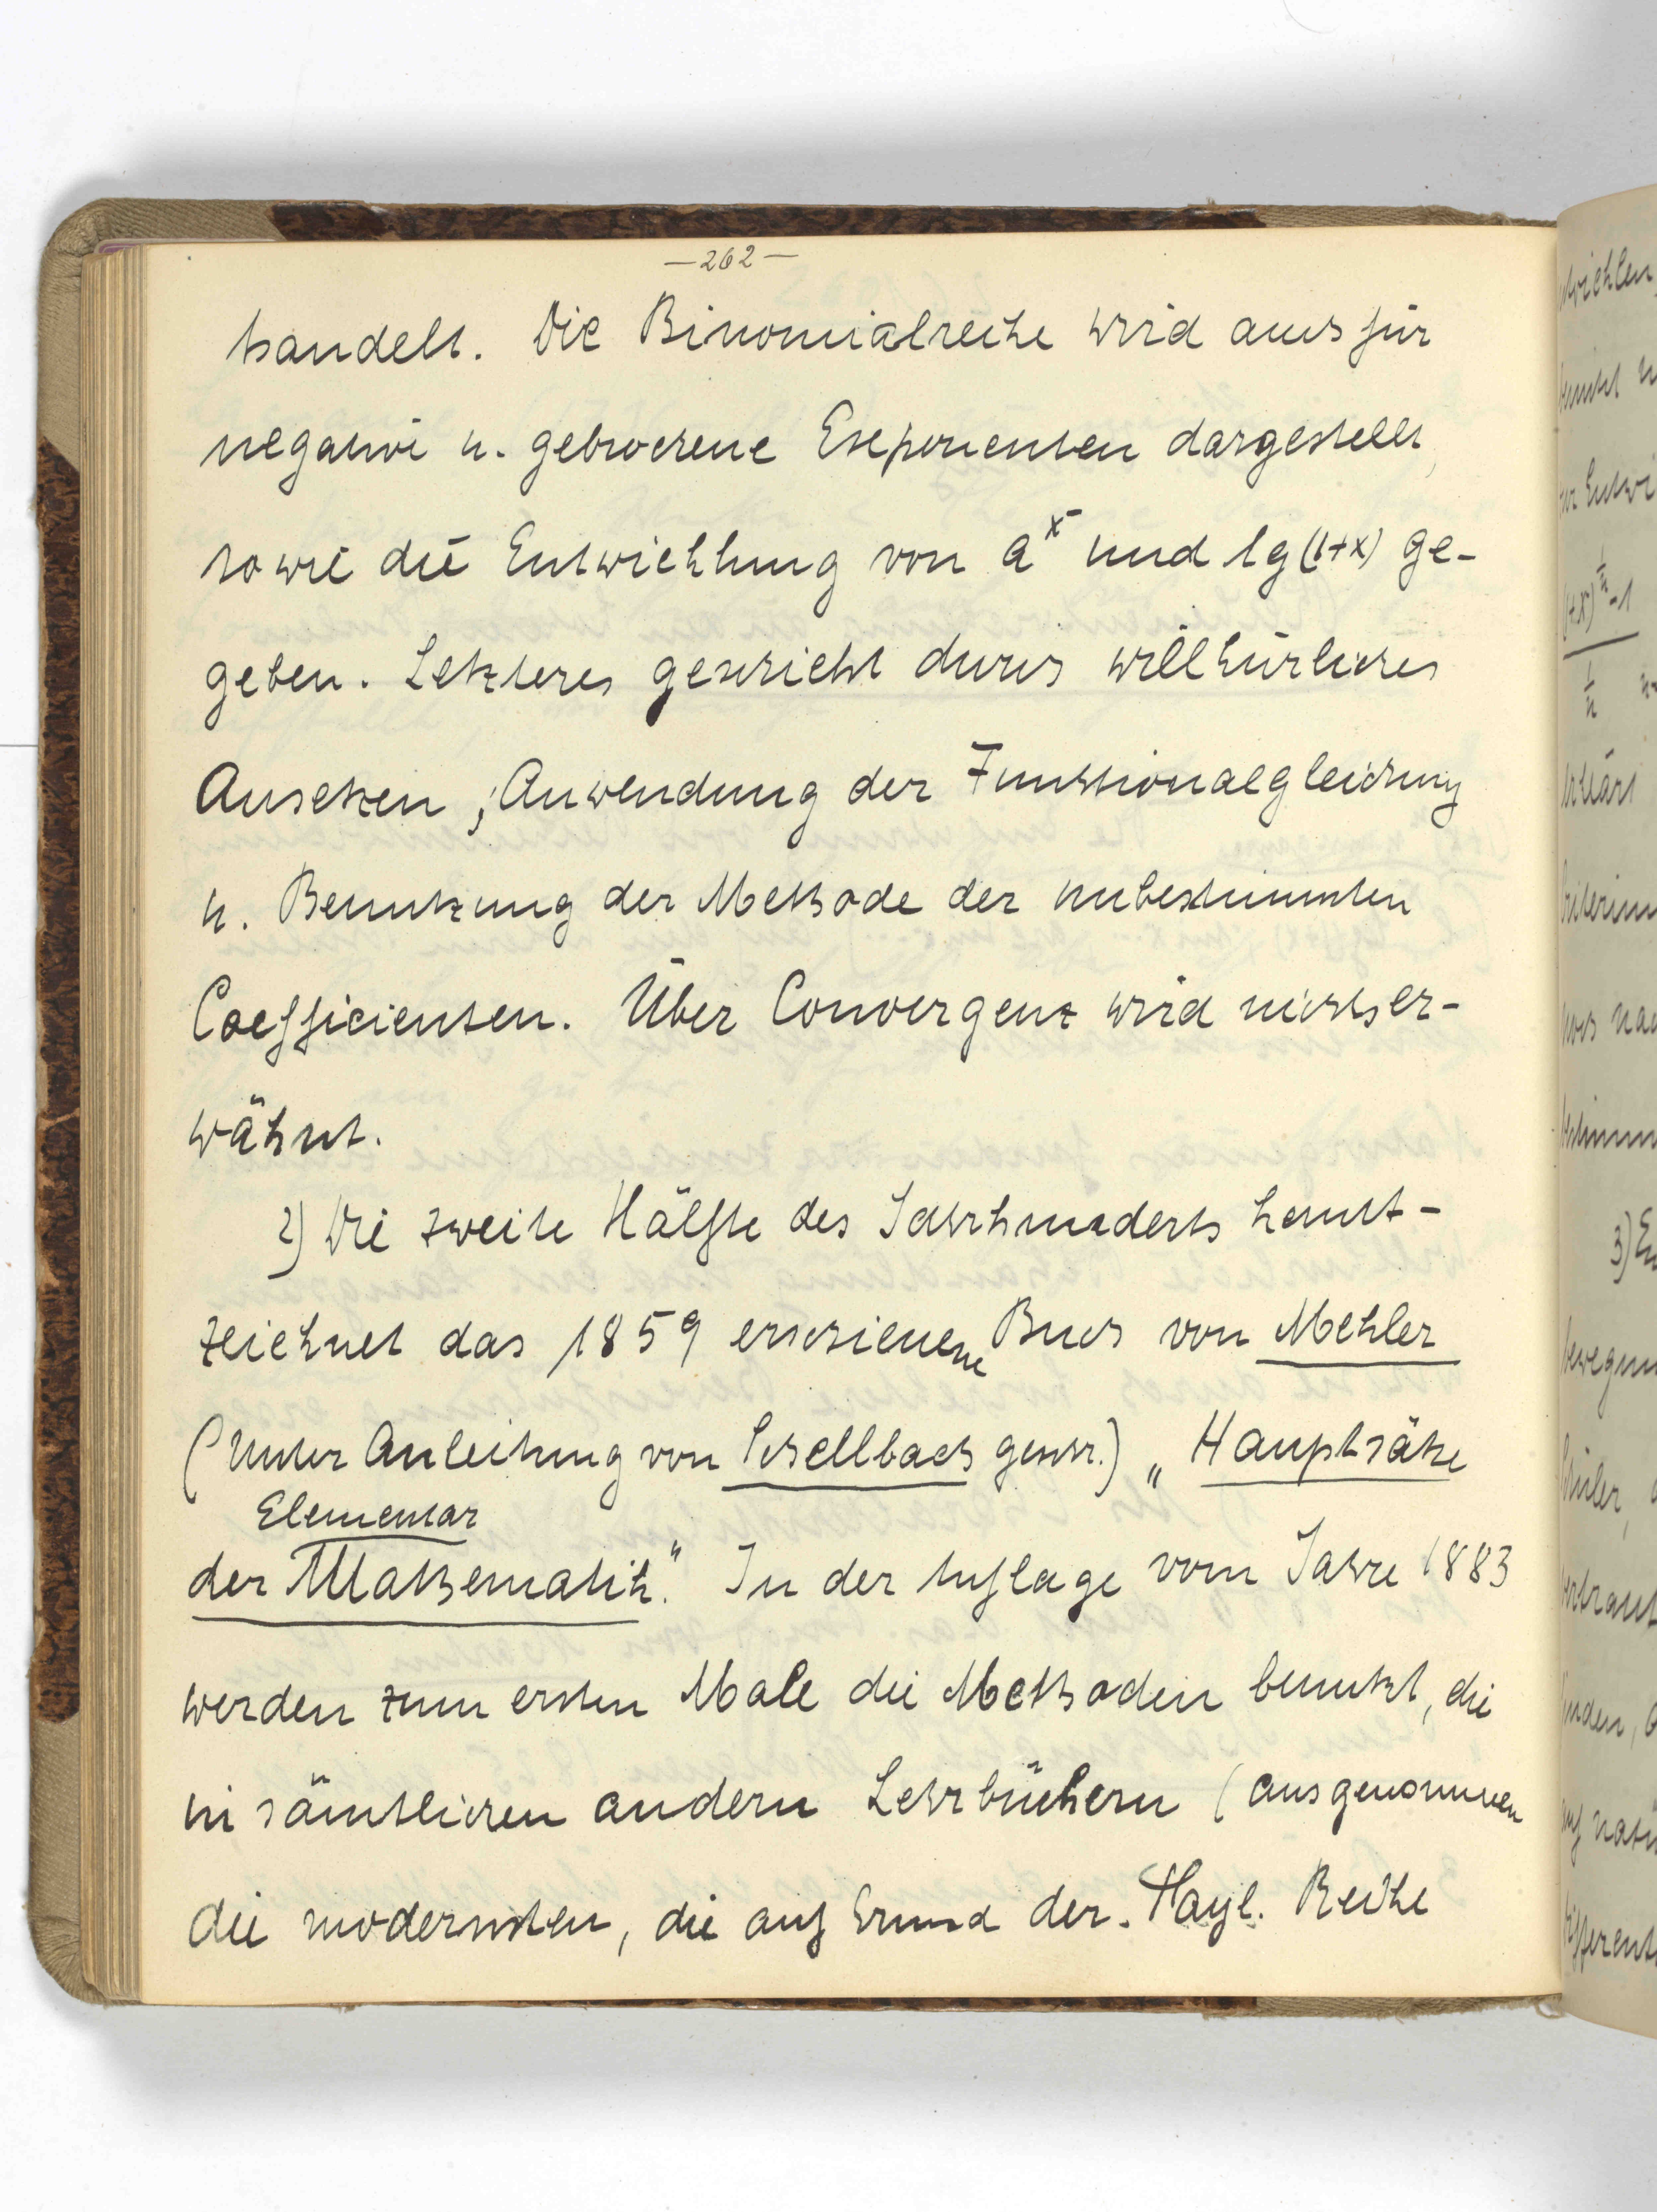 —262—
handelt. Die Binomialreihe wird auch für
negative u. gebrochene Exponenten dargestellt,
sowie die Entwicklung von a^x und lg(1+x) ge-
geben. Letzteres geschieht durch willkürliches
Ansetzen, Anwendung der Funktionalgleichung
u. Benutzung der Methode der unbestimmten
Coefficienten. Über Convergenz wird nichts er-
wähnt.
2) Die zweite Hälfte des Jahrhunderts kennt-
zeichnet das 1859 erschienene Buch von Mehler
(Unter Anleitung von Schellbach geschr.) „Hauptsätze
der Elementar Mathematik." In der Auflage vom Jahre 1883
werden zum ersten Male die Methoden benutzt, die
in sämtlichen andern Lehrbüchern (ausgenommen
die modernsten, die auf Grund der Tayl. Reihe